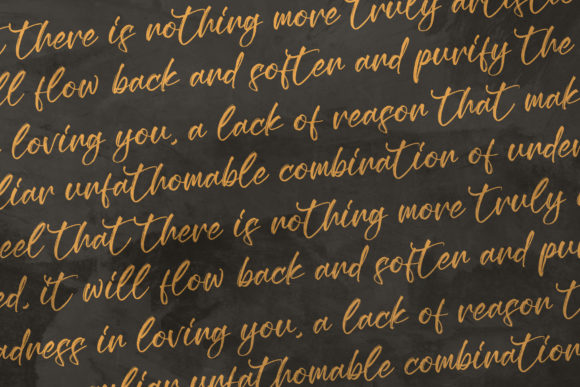 t there is nothing more truly artistic
ll flow back and soften and purify the
loving you, a lack of reason that mak
liar unfathomable combination of under
eel that there is nothing more truly
ed, it will flow back and soften and puri
adness in loving you, a lack of reason t
uliar unfathomable combination